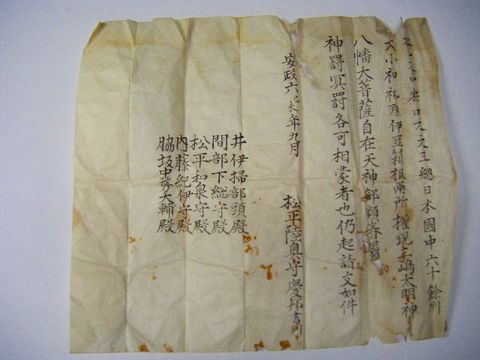 四大天王總日本國中六十餘州
大小神祇殊伊豆箱根兩所權現三嶋大明神
八幡大菩薩自在天神部類眷屬
神罰冥罰各可相蒙者也仍起請文如件
安政六己未年九月
松平陸奥守慶邦書判
井伊掃部頭殿
間部下総守殿
松平和泉守殿
内藤紀伊守殿
脇坂中務大輔殿